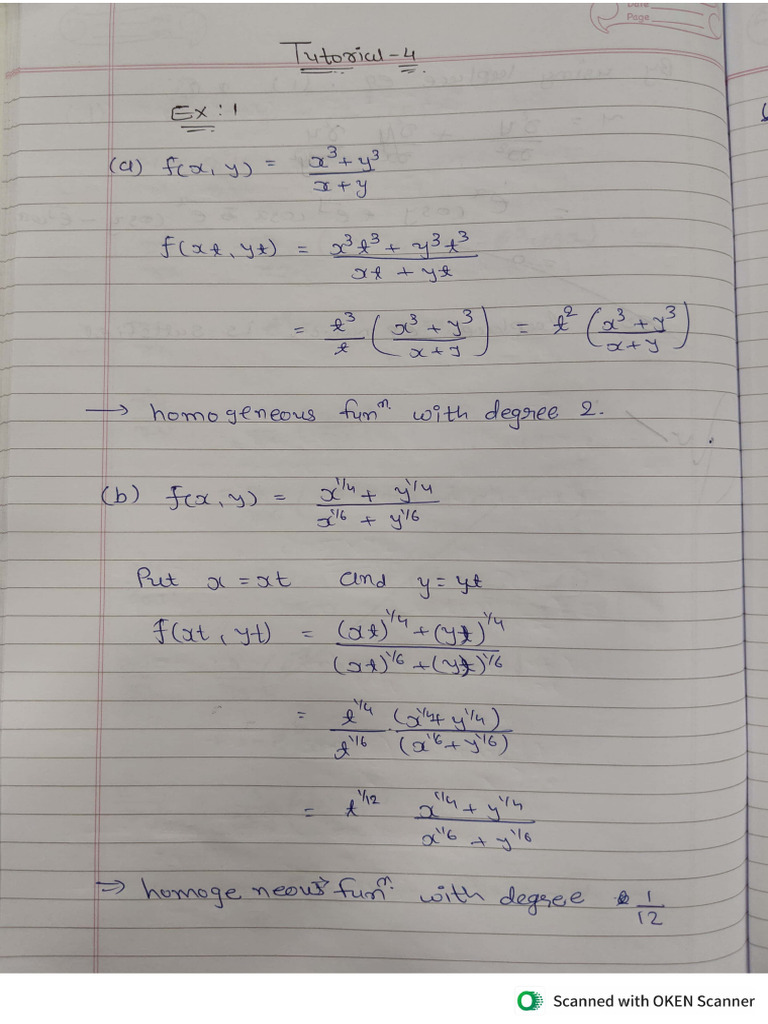 Page
Tutorial-4
Ex:1
(a) f(x, y) = x³+y³ / x+y
f(xt, yt) = x³t³ + y³t³ / xt + yt
= t³/t (x³+y³ / x+y) = t² (x³+y³ / x+y)
→ homogeneous funⁿ. with degree 2.
(b) f(x,y) = x^1/4 + y^1/4 / x^1/6 + y^1/6
Put x = xt and y = yt
f(xt, yt) = (xt)^1/4 + (yt)^1/4 / (xt)^1/6 + (yt)^1/6
= t^1/4 / t^1/6 · (x^1/4 + y^1/4) / (x^1/6 + y^1/6)
= t^1/12 x^1/4 + y^1/4 / x^1/6 + y^1/6
⇒ homogeneous funⁿ. with degree 1/12
Scanned with OKEN Scanner